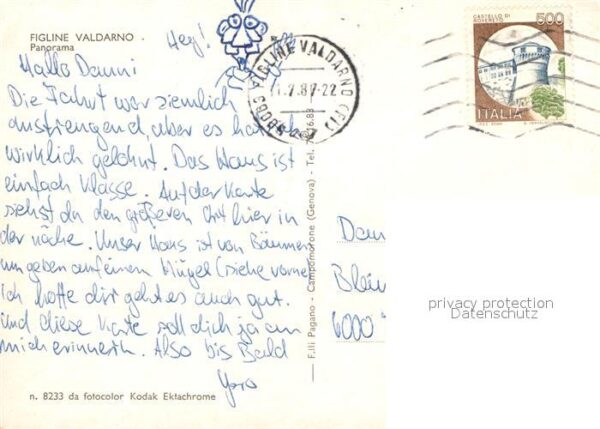 FIGLINE VALDARNO
Panorama
Hey!
Hallo Danni
Die Fahrt war ziemlich
anstrengend, aber es hat sich
wirklich gelohnt. Das Haus ist
einfach klasse. Auf der Karte
siehst du den größeren Ort hier in
der nähe. Unser Haus ist von Bäumen
umgeben auf einem Hügel (siehe vorne)
ich hoffe dir geht es auch gut.
Und diese Karte soll dich ja an
mich erinnern. Also bis Bald
n. 8233 da fotocolor Kodak Ektachrome
F.lli Pagano - Campomorone (Genova) - Tel.
FIGLINE VALDARNO (FI)
CASTELLO DI
ROVERETO
500
ITALIA
6000
privacy protection
Datenschutz